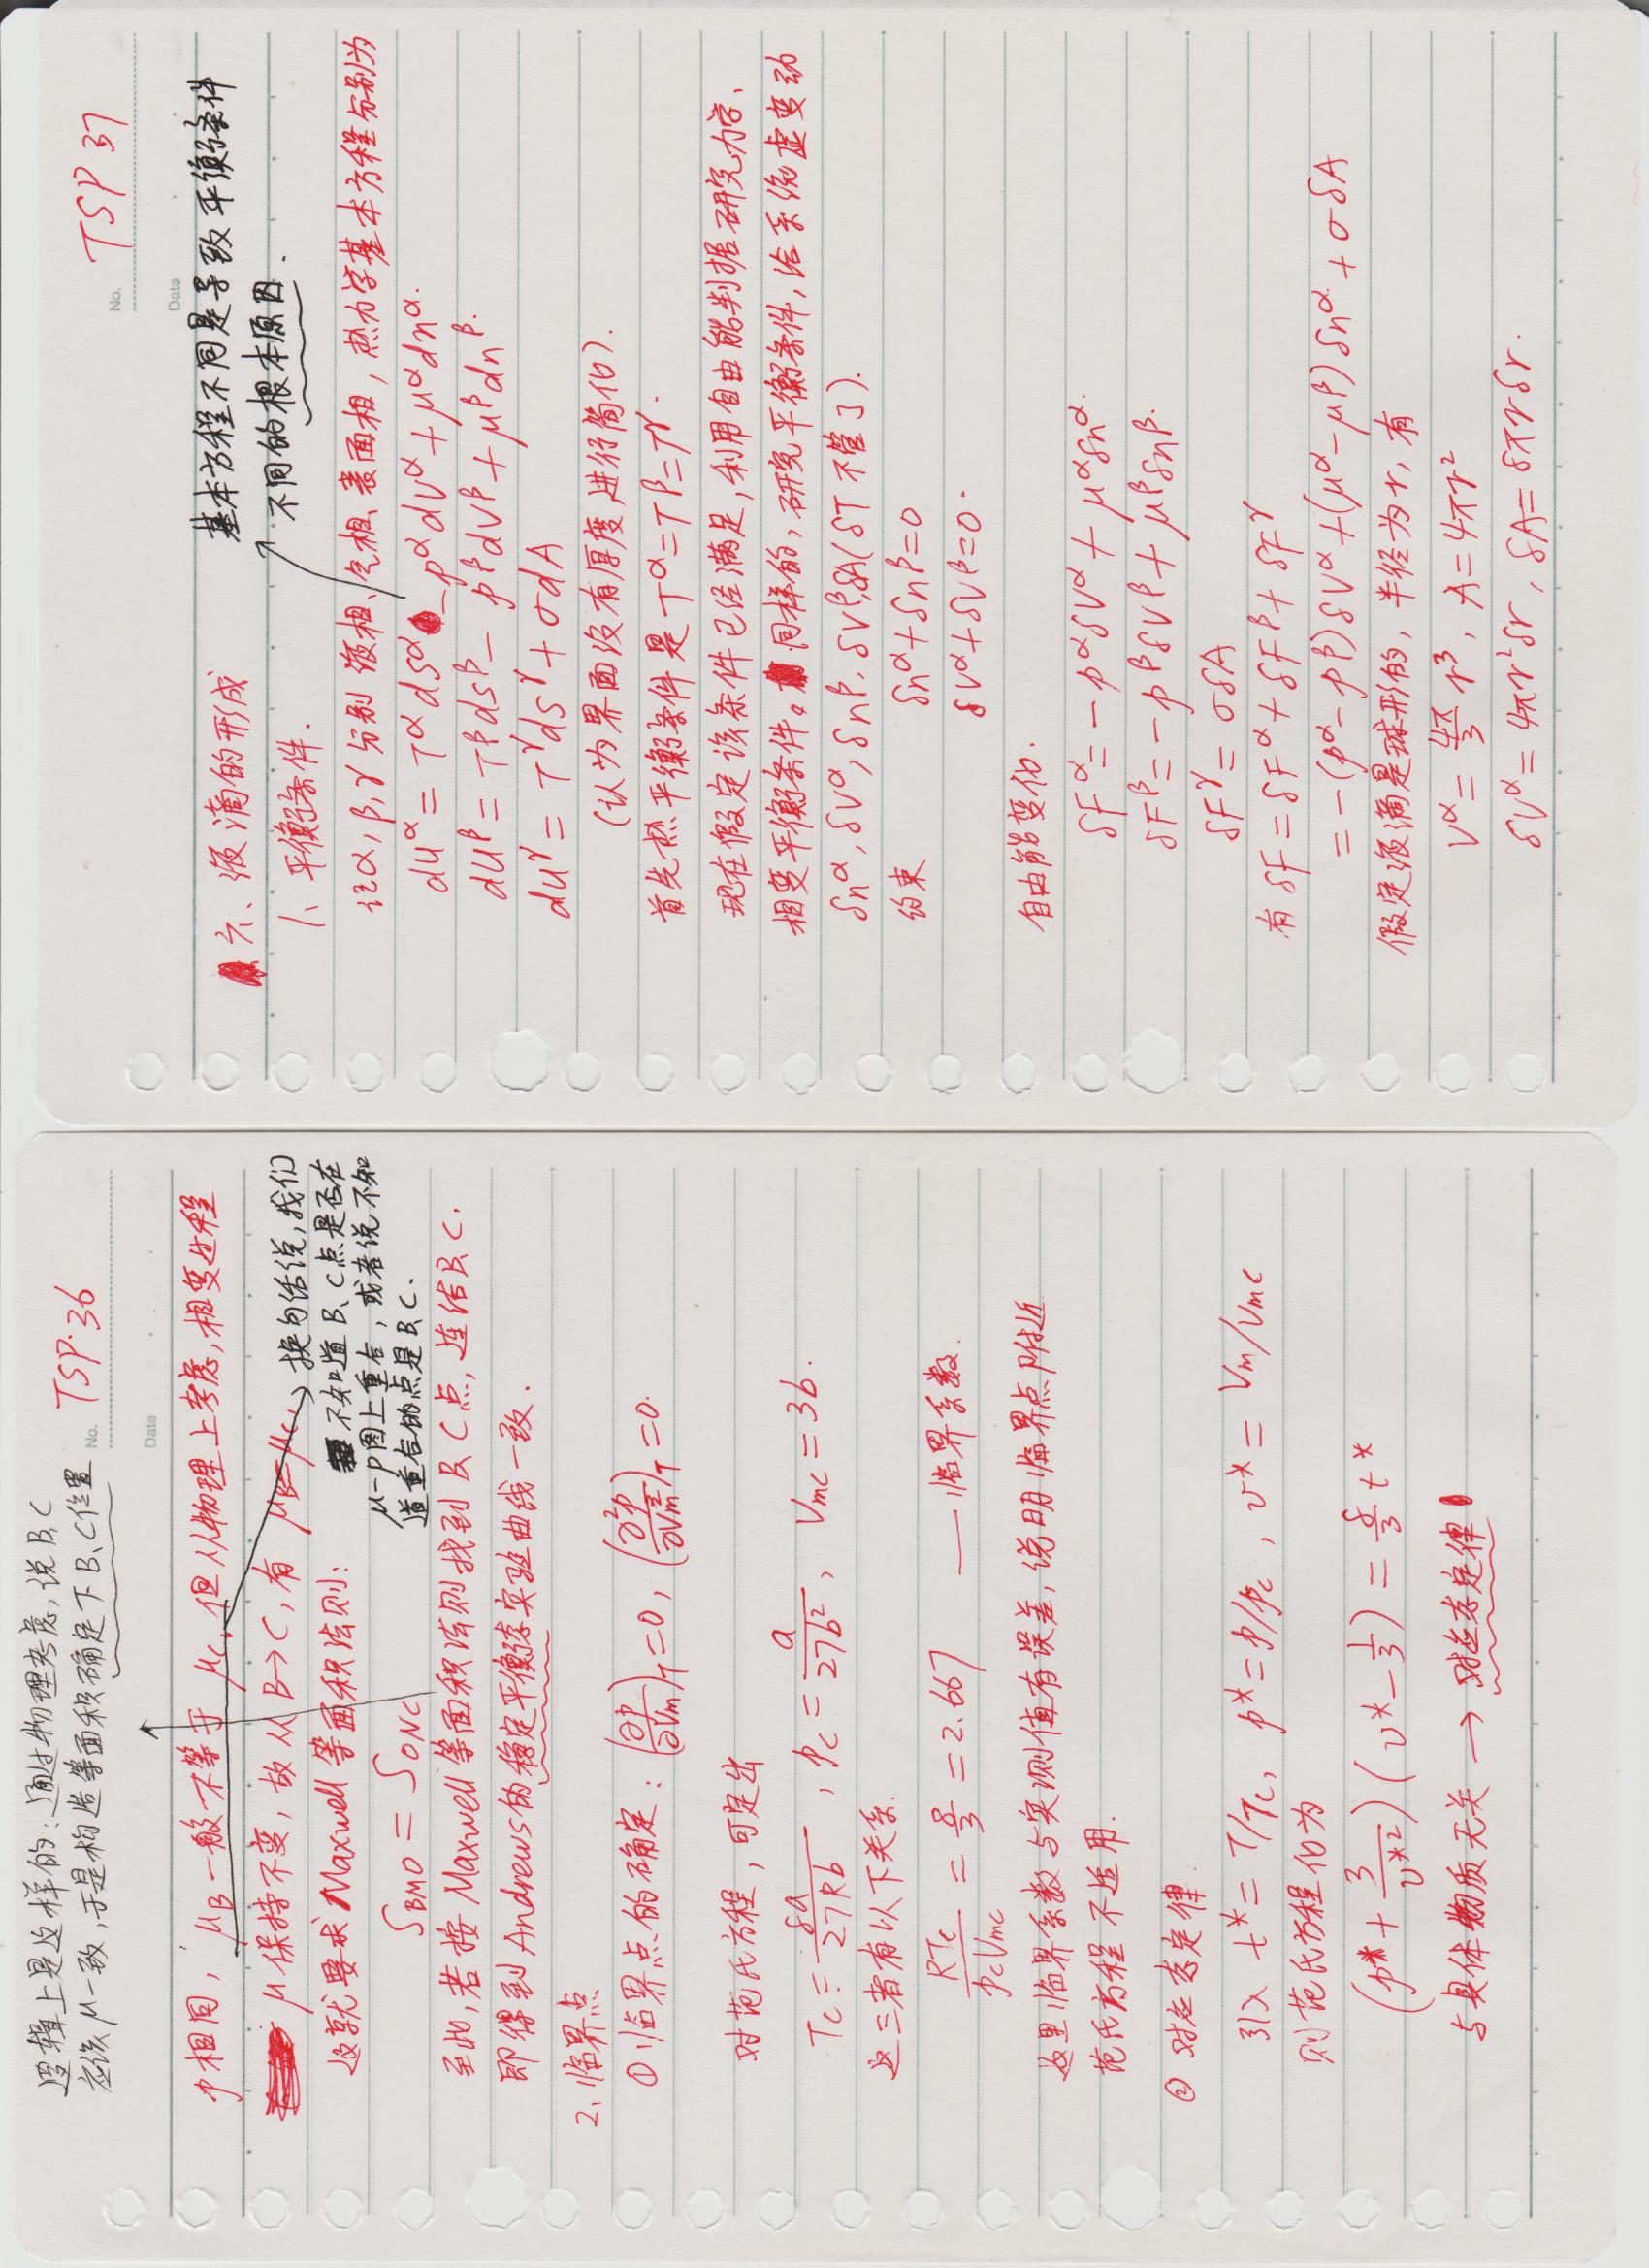 逻辑上是这样的：通过物理考虑，说B、C
应该μ一致，于是构造等面积确定下B、C位置
No. TSP·36
Date
p相同，μB一般不等于μC，但从物理上考虑，相变过程
μ保持不变，故从B→C，有 μB=μC，
换句话说，我们
不知道B、C点是否在
μ-p图上重合，或者说不知
道重合的点是B、C.
这就要求Maxwell等面积法则：
S_BMO = S_ONC
至此，若按Maxwell等面积法则找到B、C点，连结B、C.
即得到Andrews的稳定平衡态实验曲线一致.
2、临界点
① 临界点的确定：(∂p/∂Vm)_T=0，(∂²p/∂Vm²)_T=0.
对范氏方程，可定出
Tc = 8a/27Rb，pc = a/27b²，Vmc = 3b.
这三者有以下关系.
RTc/pcVmc = 8/3 = 2.667 —— 临界系数.
这里临界系数与实测值有误差，说明临界点附近
范氏方程不适用.
② 对应态定律.
引入 t* = T/Tc，p* = p/pc，v* = Vm/Vmc
则范氏方程化为
(p* + 3/v*²)(v* - 1/3) = 8/3 t*
与具体物质无关 → 对应态定律
No. TSP 37
Date
基本方程不同是导致平衡条件
不同的根本原因.
六、液滴的形成
1、平衡条件.
记α，β，γ分别液相、气相、表面相，热力学基本方程分别为
dU^α = T^α dS^α - p^α dV^α + μ^α dn^α.
dU^β = T^β dS^β - p^β dV^β + μ^β dn^β.
dU^γ = T^γ dS^γ + σdA
(认为界面没有厚度，进行简化).
首先热平衡条件是 T^α = T^β = T^γ.
现在假定该条件已经满足，利用自由能判据研究力学、
相变平衡条件。同样的，研究平衡条件，给系统虚变动
δn^α，δV^α，δn^β，δV^β，δA(δT不管了).
约束 δn^α + δn^β = 0
δV^α + δV^β = 0.
自由能变化.
δF^α = -p^α δV^α + μ^α δn^α.
δF^β = -p^β δV^β + μ^β δn^β.
δF^γ = σδA
有 δF = δF^α + δF^β + δF^γ
= -(p^α - p^β)δV^α + (μ^α - μ^β)δn^α + σδA
假定液滴是球形的，半径为r，有
V^α = 4π/3 r³，A = 4πr²
δV^α = 4πr²δr，δA = 8πrδr.